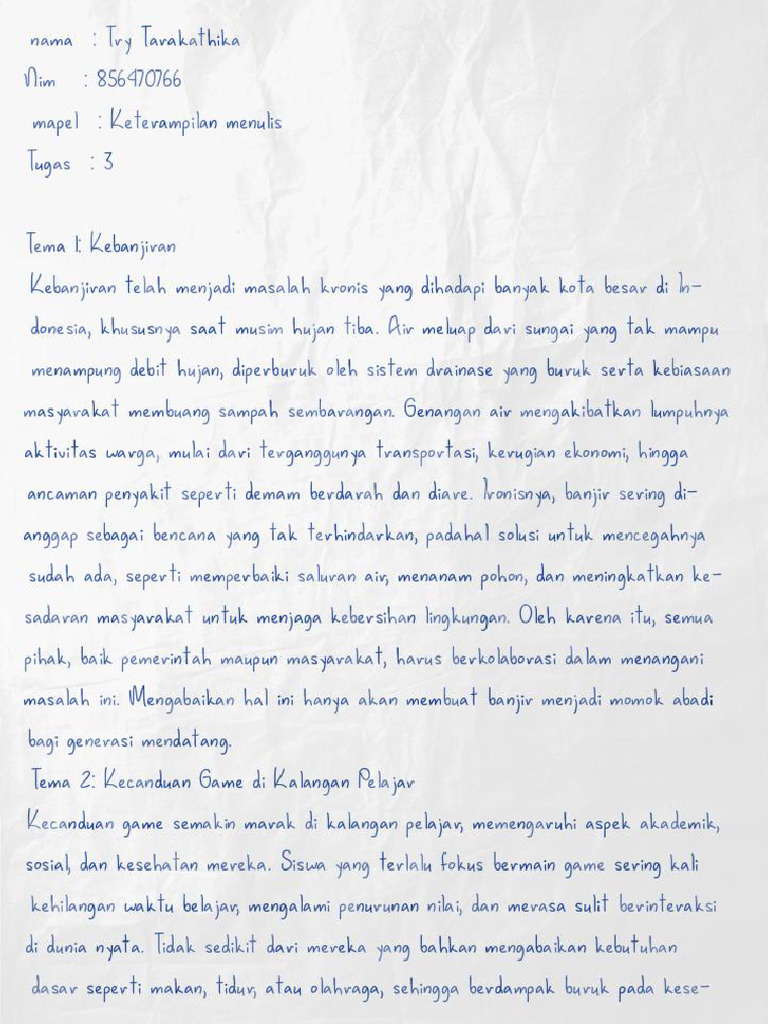 nama : Try Tarakathika
Nim : 856470766
mapel : Keterampilan menulis
Tugas : 3
Tema 1: Kebanjiran
Kebanjiran telah menjadi masalah kronis yang dihadapi banyak kota besar di In-
donesia, khususnya saat musim hujan tiba. Air meluap dari sungai yang tak mampu
menampung debit hujan, diperburuk oleh sistem drainase yang buruk serta kebiasaan
masyarakat membuang sampah sembarangan. Genangan air mengakibatkan lumpuhnya
aktivitas warga, mulai dari terganggunya transportasi, kerugian ekonomi, hingga
ancaman penyakit seperti demam berdarah dan diare. Ironisnya, banjir sering di-
anggap sebagai bencana yang tak terhindarkan, padahal solusi untuk mencegahnya
sudah ada, seperti memperbaiki saluran air, menanam pohon, dan meningkatkan ke-
sadaran masyarakat untuk menjaga kebersihan lingkungan. Oleh karena itu, semua
pihak, baik pemerintah maupun masyarakat, harus berkolaborasi dalam menangani
masalah ini. Mengabaikan hal ini hanya akan membuat banjir menjadi momok abadi
bagi generasi mendatang.
Tema 2: Kecanduan Game di Kalangan Pelajar
Kecanduan game semakin marak di kalangan pelajar, memengaruhi aspek akademik,
sosial, dan kesehatan mereka. Siswa yang terlalu fokus bermain game sering kali
kehilangan waktu belajar, mengalami penurunan nilai, dan merasa sulit berinteraksi
di dunia nyata. Tidak sedikit dari mereka yang bahkan mengabaikan kebutuhan
dasar seperti makan, tidur, atau olahraga, sehingga berdampak buruk pada kese-